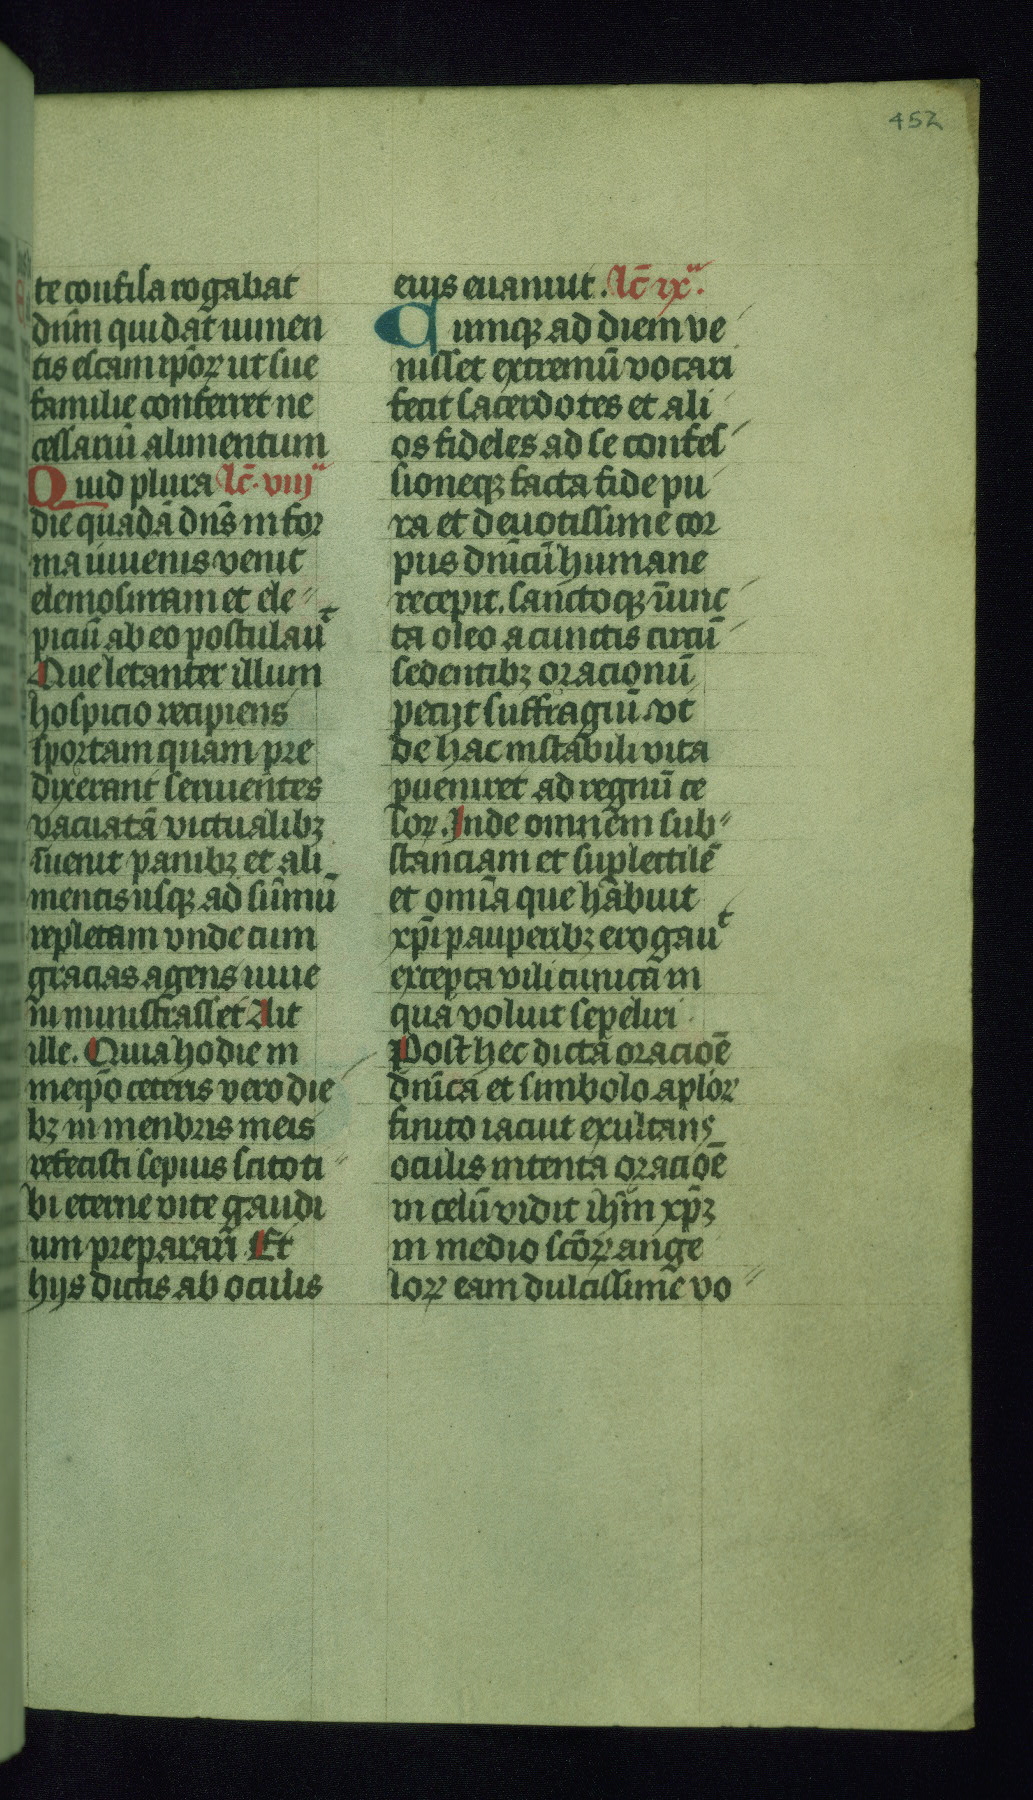 452
te confisa rogabat
dn̄m qui dat̄ iumen
tis escam ip̄oꝝ ut sue
familie conferret ne
cessariū alimentum
Quid plura lc̄. viijᵃ
die quadā dn̄s in for
ma iuuenis venit
elemosinam et ele
piciū ab eo postulauᵗ
Que letanter illum
hospicio recipiens
sportam quam pre
dixerant seruientes
vacuatā victualibꝫ
īuenit panibꝫ et ali
mentis usqꝫ ad sūmū
repletam vnde cum
gracias agens iuue
ni ministrasset Ait
ille. Quia hodie in
meip̄o ceteris vero die
bꝫ in menbris meis
refecisti sepius scito ti
bi eterne vite gaudi
um preparari Et
hijs dictis ab oculis
eius euanuit. lc̄ ixᵃ.
Cumqꝫ ad diem ve
nisset extremū vocari
fecit sacerdotes et ali
os fideles ad se confes
sioneqꝫ facta fide pu
ra et deuotissime cor
pus dn̄icū humane
recepit. sanctoqꝫ īunc
ta oleo a cunctis circū
sedentibꝫ oracionū
pecijt suffragiū. vt
de hac instabili vita
ꝑueniret ad regnū ce
loꝝ. Inde omnem sub
stanciam et supllectilē
et omīa que habuit
xp̄i pauperibꝫ erogauᵗ
excepta vili tunica in
qua voluit sepeliri
Post hec dicta oracioē
dn̄ica et simbolo aploꝝ
finito iacuit exultans
oculis intenta oracioē
in celū vidit ih̄m xp̄ꝫ
in medio sc̄oꝝ ange
loꝝ eam dulcissime vo